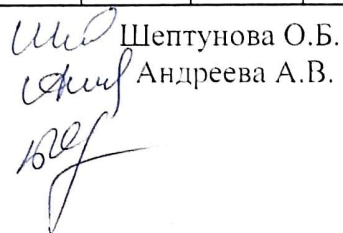 Шептунова О.Б.
Андреева А.В.